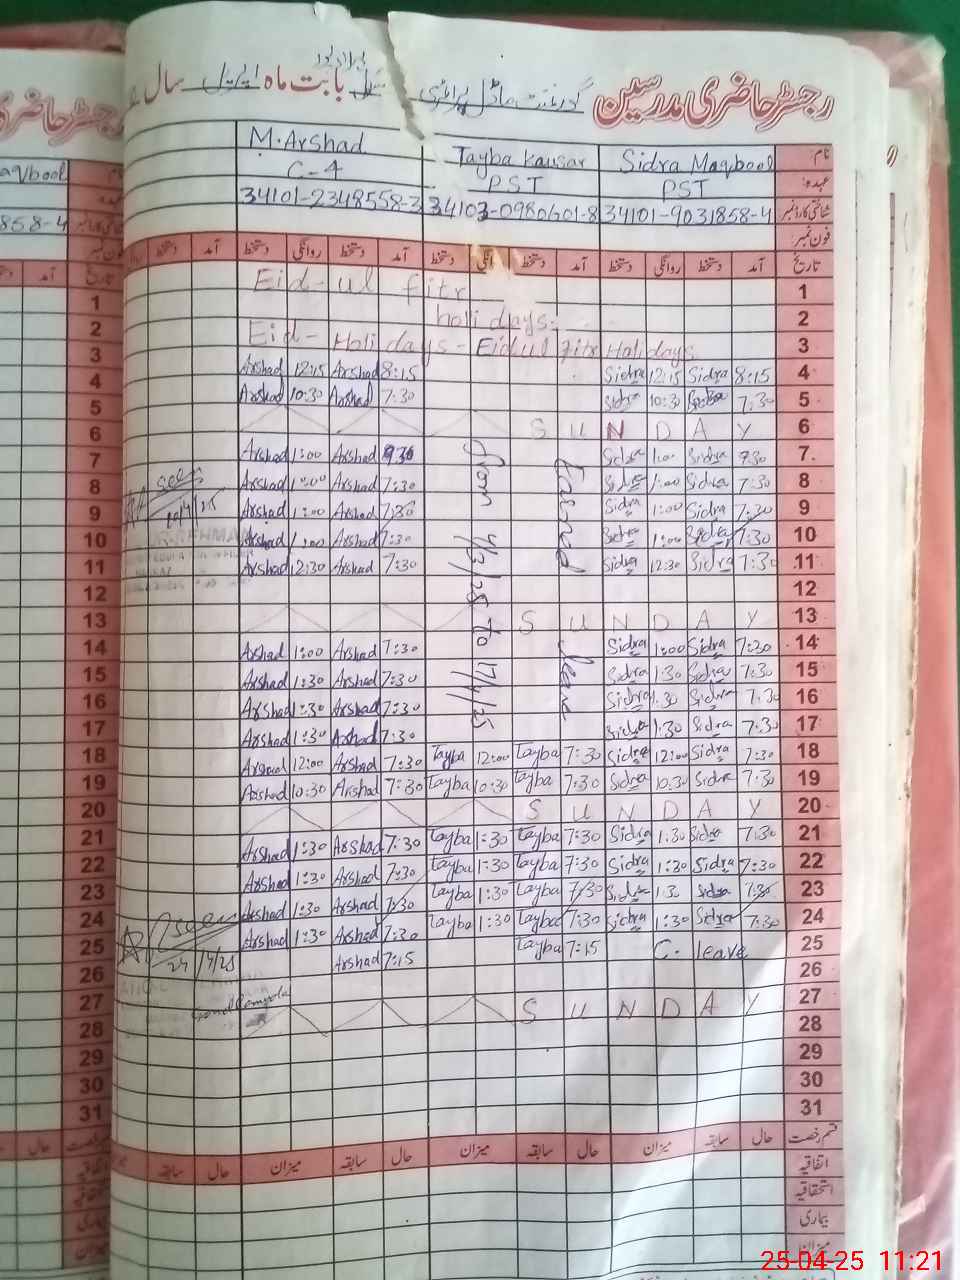 رجسٹر حاضری مدرسین گورنمنٹ ماڈل پرائمری سکول بابت ماہ اپریل سال
نام Sidra Maqbool Tayba Kausar M. Arshad
عہدہ PST PST C-4
شناختی کارڈ نمبر 34101-9031858-4 34103-0980601-8 34101-2348558-3
فون نمبر
تاریخ آمد دستخط روانگی دستخط آمد دستخط روانگی دستخط آمد دستخط روانگی دستخط آمد
1 Eid-ul fitr
2 holidays.
3 Eid- Holidays - Eidul fitr Holidays
4 Arshad 12:15 Arshad 8:15 Sidra 12:15 Sidra 8:15
5 Arshad 10:30 Arshad 7:30 Sidra 10:30 Sidra 7:30
6 S U N D A Y
7 Arshad 1:00 Arshad Sidra 1:00 Sidra
8 Arshad 1:00 Arshad 7:30 Sidra 1:00 Sidra 7:30
9 Arshad 1:00 Arshad 7:30 Sidra 1:00 Sidra 7:30
10 Arshad 1:00 Arshad 7:30 Sidra 1:00 Sidra 7:30
11 Arshad 12:30 Arshad 7:30 Sidra 12:30 Sidra 7:30
12
13 S U N D A Y
14 Arshad 1:00 Arshad 7:30 Sidra 1:00 Sidra 7:30
15 Arshad 1:30 Arshad 7:30 Sidra 1:30 Sidra 7:30
16 Arshad 1:30 Arshad 7:30 Sidra 1:30 Sidra 7:30
17 Arshad 1:30 Arshad 7:30 Sidra 1:30 Sidra 7:30
Earned leave
from to 17/4/25
18 Arshad 12:00 Arshad 7:30 Tayba 12:00 Tayba 7:30 Sidra 12:00 Sidra 7:30
19 Arshad 10:30 Arshad 7:30 Tayba 10:30 Tayba 7:30 Sidra 10:30 Sidra 7:30
20 S U N D A Y
21 Arshad 1:30 Arshad 7:30 Tayba 1:30 Tayba 7:30 Sidra 1:30 Sidra 7:30
22 Arshad 1:30 Arshad 7:30 Tayba 1:30 Tayba 7:30 Sidra 1:30 Sidra 7:30
23 Arshad 1:30 Arshad 7:30 Tayba 1:30 Tayba 7:30 Sidra 1:30 Sidra 7:30
24 Arshad 1:30 Arshad 7:30 Tayba 1:30 Tayba 7:30 Sidra 1:30 Sidra 7:30
25 Arshad 7:15 Tayba 7:15 C. leave
26
27 S U N D A Y
28
29
30
31
seen
seen
24/4/25
قسم رخصت حال سابقہ میزان حال سابقہ میزان حال سابقہ میزان حال سابقہ
اتفاقیہ
استحقاقیہ
بیماری
میزان
25-04-25 11:21